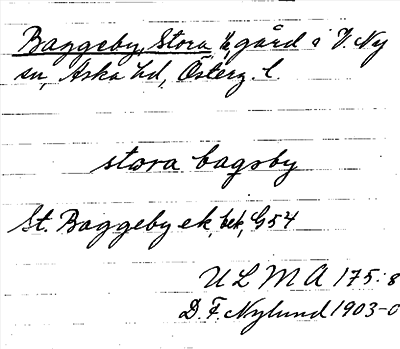 Baggeby, Stora, h, gård i V. Ny
sn, Aska hd, Österg. l.
stora bagsby
St. Baggeby ek, bek, G54
ULMA 175:8
D. F. Nylund 1903-0